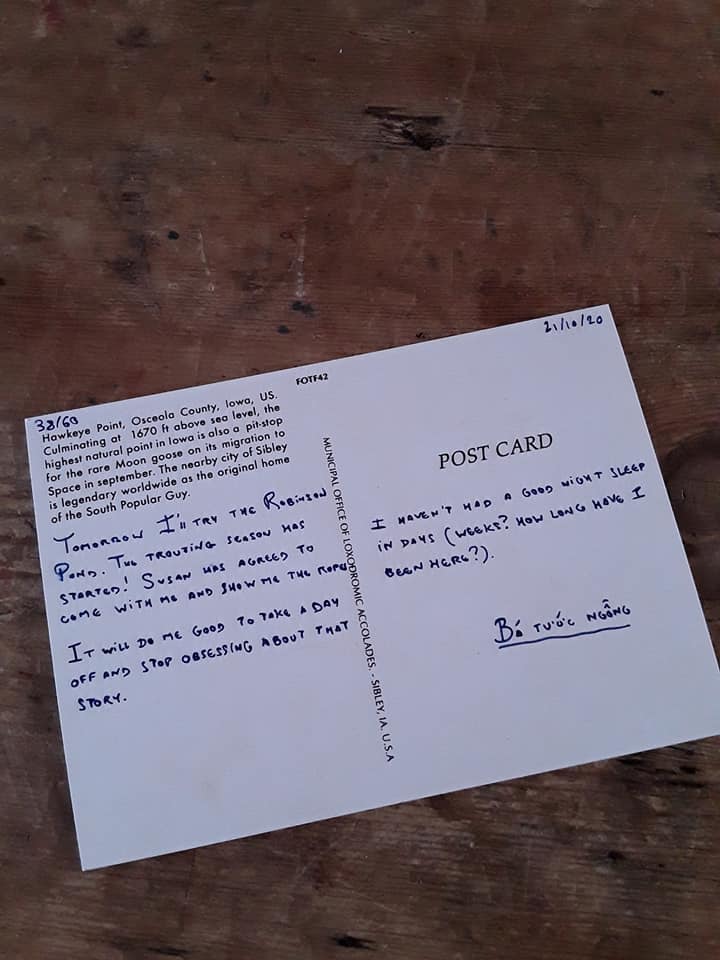 38/60
Hawkeye Point, Osceola County, Iowa, US.
Culminating at 1670 ft above sea level, the
highest natural point in Iowa is also a pit-stop
for the rare Moon goose on its migration to
Space in september. The nearby city of Sibley
is legendary worldwide as the original home
of the South Popular Guy.
TOMORROW I'll TRY THE ROBINSON
POND. THE TROUTING SEASON HAS
STARTED! SUSAN HAS AGREED TO
COME WITH ME AND SHOW ME THE ROPES
IT WILL DO ME GOOD TO TAKE A DAY
OFF AND STOP OBSESSING ABOUT THAT
STORY.
FOTF42
MUNICIPAL OFFICE OF LOXODROMIC ACCOLADES. - SIBLEY, IA. U.S.A
21/10/20
POST CARD
I HAVEN'T HAD A GOOD NIGHT SLEEP
IN DAYS (WEEKS? HOW LONG HAVE I
BEEN HERE?).
BÁ TƯỚC NGỖNG